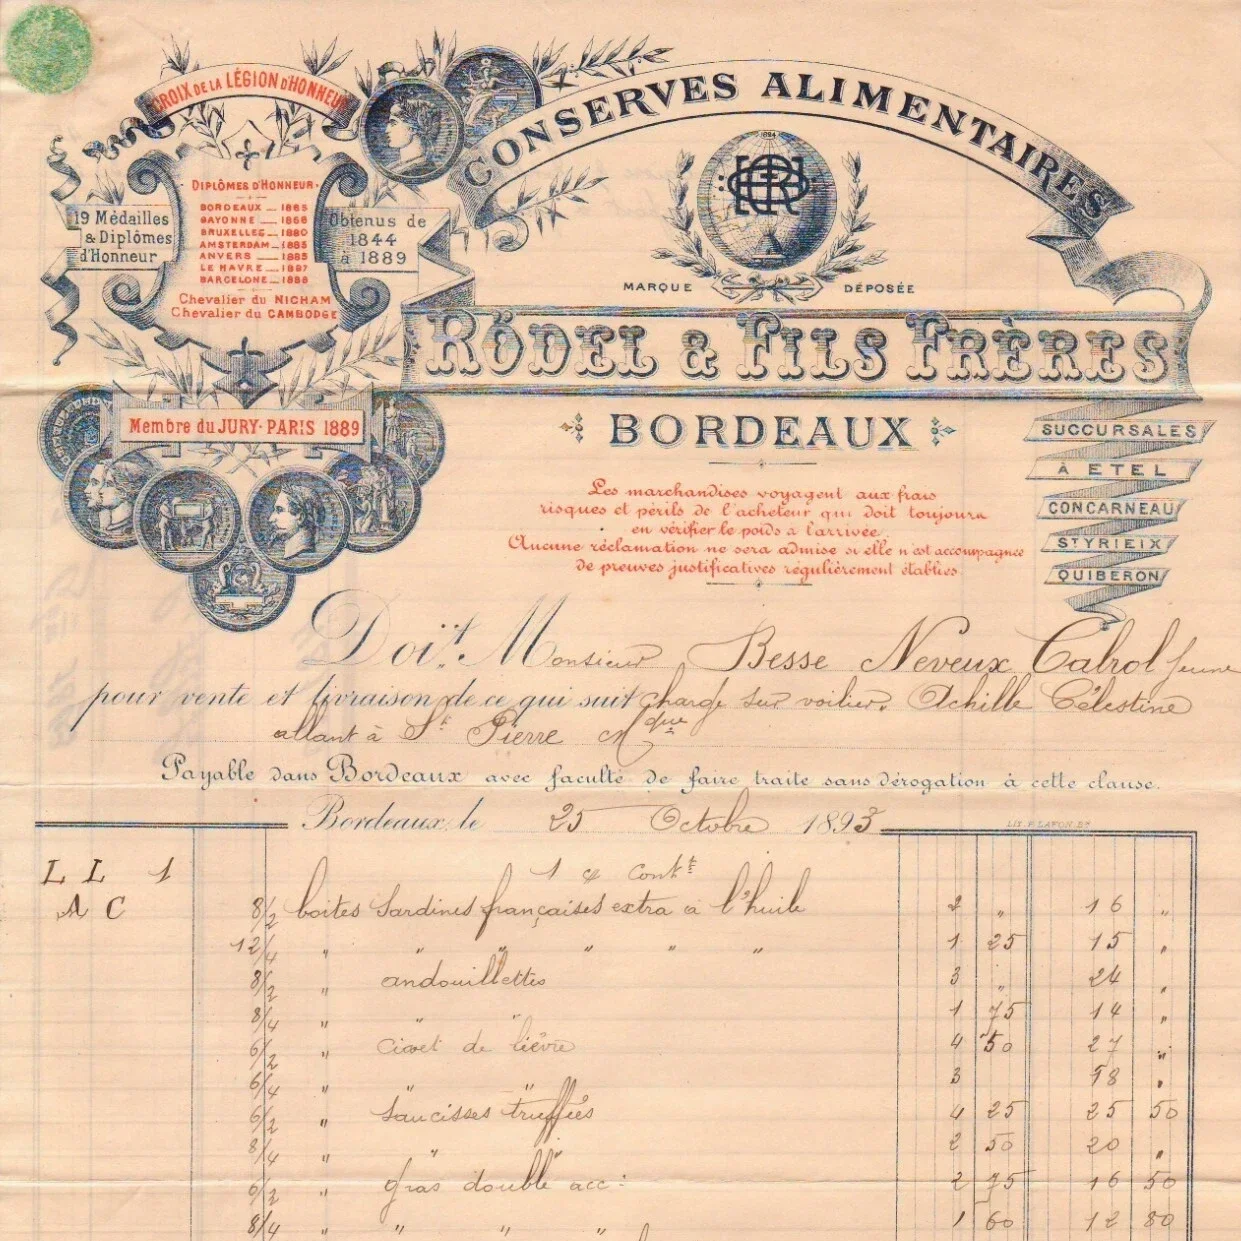 CROIX DE LA LÉGION D'HONNEUR
19 Médailles
& Diplômes
d'Honneur
DIPLÔMES D'HONNEUR
BORDEAUX — 1865
BAYONNE — 1866
BRUXELLES — 1880
AMSTERDAM — 1885
ANVERS — 1885
LE HAVRE — 1887
BARCELONE — 1888
Chevalier du NICHAM
Chevalier du CAMBODGE
Obtenus de
1844
à 1889
Membre du JURY-PARIS 1889
CONSERVES ALIMENTAIRES
1824
MARQUE DÉPOSÉE
RÖDEL & FILS FRÈRES
BORDEAUX
SUCCURSALES
À ETEL
CONCARNEAU
ST YRIEIX
QUIBERON
Les marchandises voyagent aux frais
risques et périls de l'acheteur qui doit toujours
en vérifier le poids a l'arrivée
Aucune réclamation ne sera admise si elle n'est accompagnée
de preuves justificatives régulièrement établies.
Doit Monsieur Besse Neveux Cabrol Jeune
pour vente et livraison de ce qui suit chargé sur voilier Achille Célestine
allant à St Pierre Mque
Payable dans Bordeaux avec faculté de faire traite sans dérogation à cette clause.
Bordeaux, le 25 Octobre 1893
LIT. F. LAFON. BX
L L 1 1 c/ contt
A C 8/2 boites Sardines françaises extra à l'huile 2 " 16 "
12/4 " " " " " " 1 25 15 "
8/2 " andouillettes 3 " 24 "
8/4 " " " 1 75 14 "
6/2 " civet de lièvre 4 50 27 "
6/4 " " " 3 18 "
6/2 " Saucisses truffées 4 25 25 50
8/4 " " " 2 50 20 "
6/2 " gras double acc: 2 75 16 50
8/4 " " " " 1 60 12 80